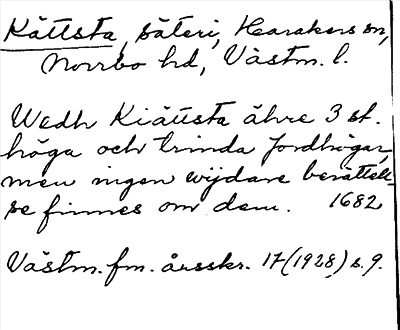 Kättsta, säteri, Harakers sn,
Norrbo hd, Västm. l.
Wedh Kiättsta ähre 3 st.
höga och trinda Jordhögar,
men ingen wijdare berättel=
se finnes om dem. 1682
Västm. fm. årsskr. 17 (1928) s. 9.